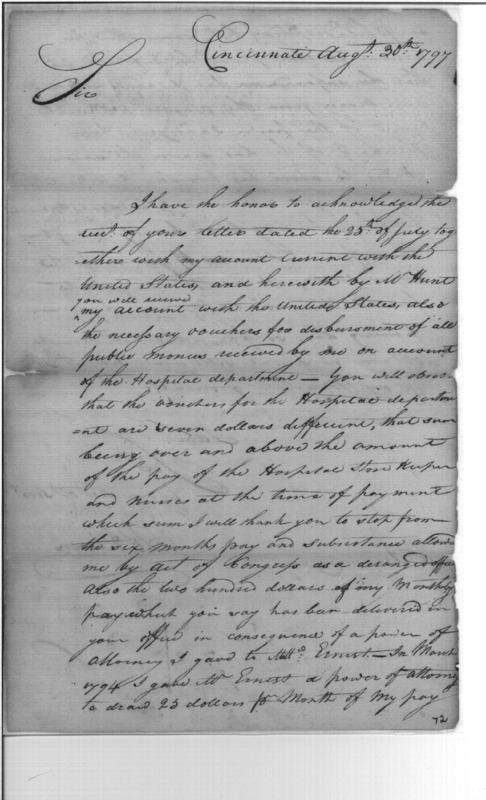 Cincinnati Augt. 30th 1797
Sir
I have the honor to acknowledge the
rect. of your letter dated the 25th of July tog
ether with my account current with the
United States, and herewith by Mr Hunt
you will receive
my account with the United States, also
the necessary vouchers for disbursment of all
public monies received by me on account
of the Hospital department — You will observe
that the vouchers for the Hospital departm
=ent are seven dollars different, that sum
being over and above the amount
of the pay of the Hospital Store Keeper
and nurses at the time of payment
which sum I will thank you to stop from
the six months pay and subsistance allowed
me by act of Congress as a deranged officer
Also the two hundred dollars of my Monthly
pay what you say has been delivered in
your office in consequence of a power of
Attorney I gave to Ernest — In March
1794 I gave Mr Ernest a power of attorney
to draw 25 dollars pr Month of my pay
72